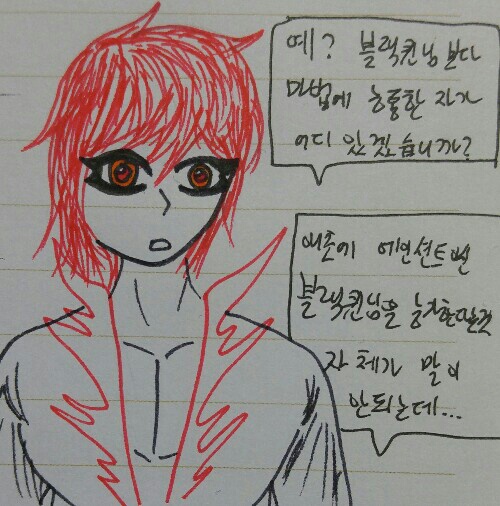 예? 블랙퀸님보다
마법에 능통한 자가
어디 있겠습니까?
애초에 에인션트벤
블랙퀸님을 능가한다는것
자체가 말이
안되는데...